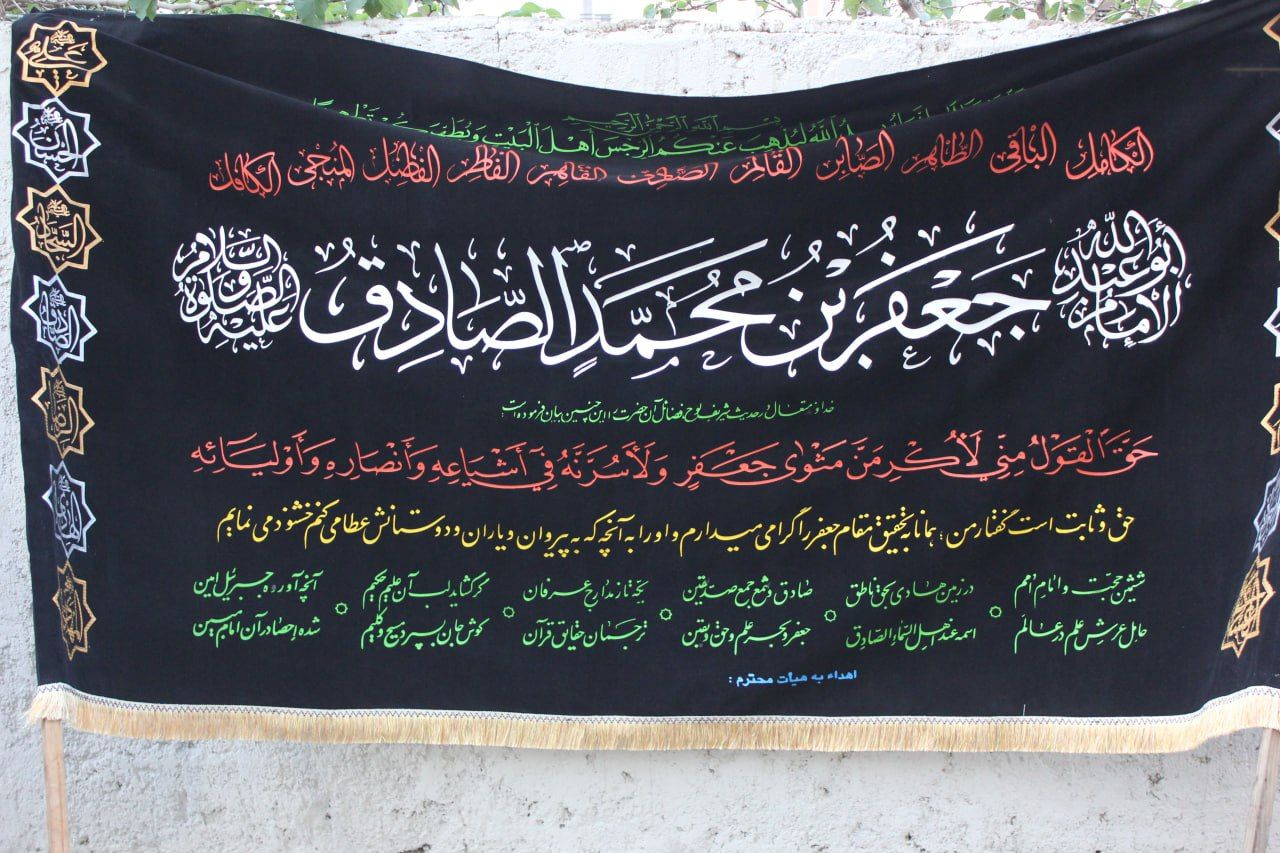 بسم الله الرحمن الرحيم
الله ليذهب عنكم الرجس أهل البيت
الكامل الباقي الطاهر الصابر القائم الصادق القاهر الفاطر الفاضل المنجي الكافل
الإمام أبو عبد الله جعفر بن محمد الصادق عليه الصلوة والسلام
خداوند متعال در حدیث شریف لوح فضائل آن حضرت را این چنین بیان فرموده است
حَقَّ الْقَوْلُ مِنِّي لَأُكْرِمَنَّ مَثْوىٰ جَعْفَرٍ وَلَأَسُرَّنَّهُ فِي أَشْيَاعِهِ وَأَنْصَارِهِ وَأَوْلِيَائِهِ
حق و ثابت است گفتار من ؛ همانا به تحقیق مقام جعفر را گرامی میدارم و او را به آنچه که به پیروان و یاران و دوستانش عطا می کنم خشنود می نمایم
ششمین حجت و امام امم در زمین هادی بحق ناطق صادق و شمع جمع صدیقین یکه تاز مدارج عرفان گر گشاید لب آن علیم حکیم آنچه آورده جبرئیل امین
حامل عرش علم در عالم اسمه عند اهل السماء الصادق جعفر و بحر علم و حق و یقین ترجمان حقایق قرآن گوش جان بسپرد مسیح و کلیم شده احصا در آن امام مبین
اهداء به هیأت محترم :
علی
الحسن
السجاد
الصادق
الرضا
الهادی
المهدی